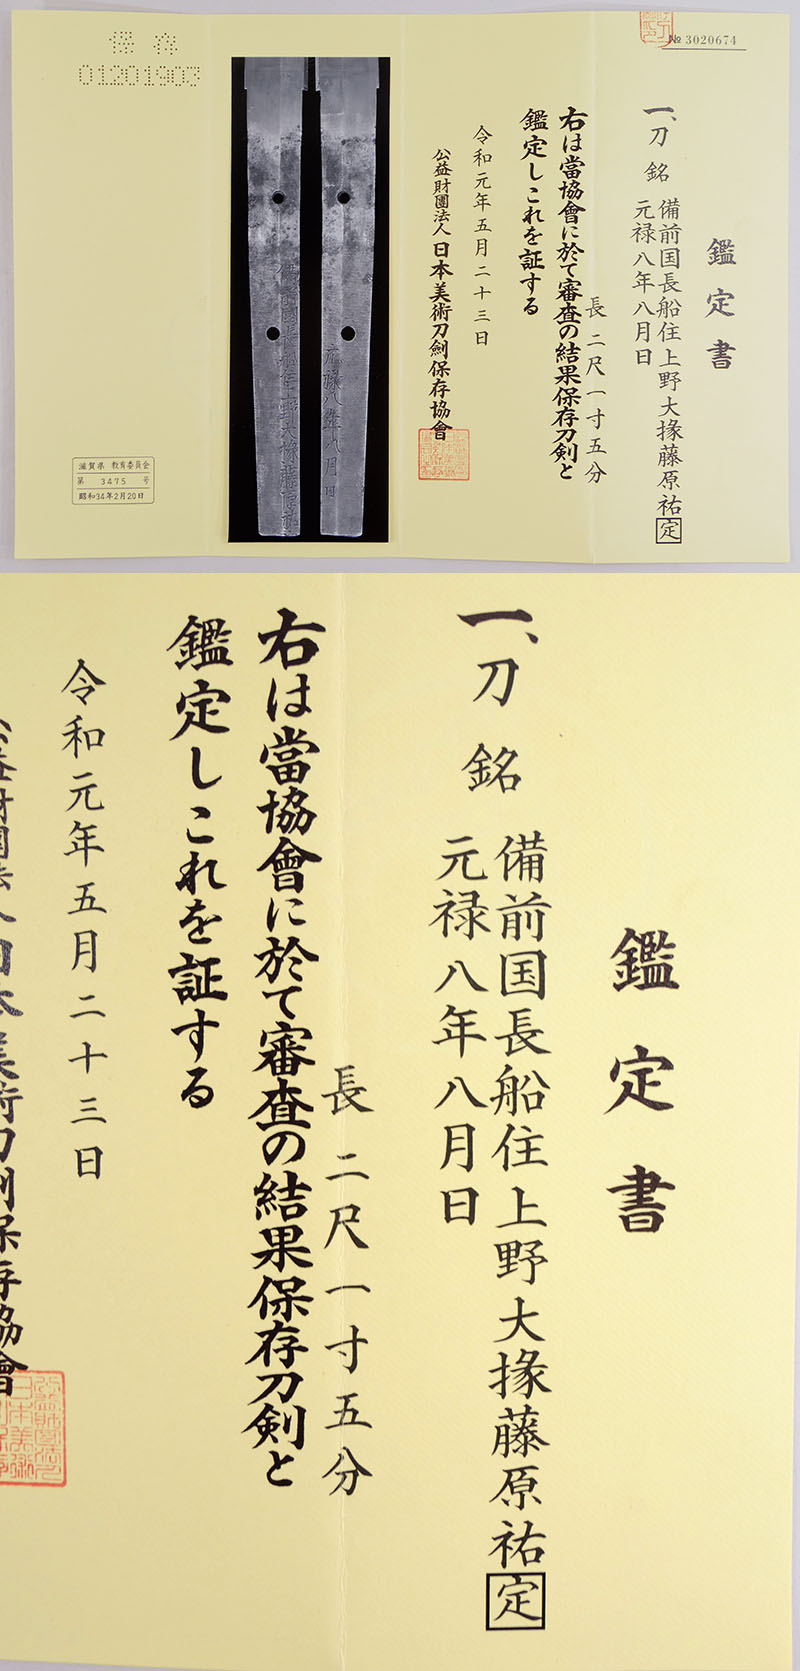 № 3020674
鑑定書
一、刀 銘 備前国長船住上野大掾藤原祐定
元禄八年八月日
長 二尺一寸五分
右は當協會に於て審査の結果保存刀剣と
鑑定しこれを証する
令和元年五月二十三日
公益財團法人日本美術刀劍保存協會
備前國長船住上野大掾藤原祐
元禄八年八月日
保存
01201903
滋賀県 教育委員会
第 3475 号
昭和34年2月20日
鑑定書
一、刀 銘 備前国長船住上野大掾藤原祐定
元禄八年八月日
長 二尺一寸五分
右は當協會に於て審査の結果保存刀剣と
鑑定しこれを証する
令和元年五月二十三日
公益財團法人日本美術刀劍保存協會